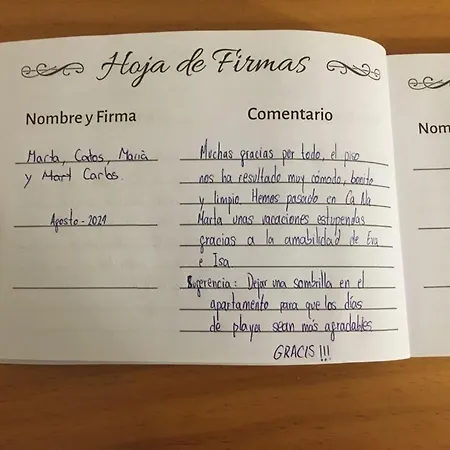 Hoja de Firmas
Nombre y Firma
Marta, Carlos, Marià
y Martí Carlos.
Agosto - 2021
Comentario
Muchas gracias por todo, el piso
nos ha resultado muy cómodo, bonito
y limpio. Hemos pasado en Ca Na
Marta unas vacaciones estupendas
gracias a la amabilidad de Eva
e Isa
Sugerencia: Dejar una sombrilla en el
apartamento para que los días
de playa sean más agradables
GRACIS !!!
Nom